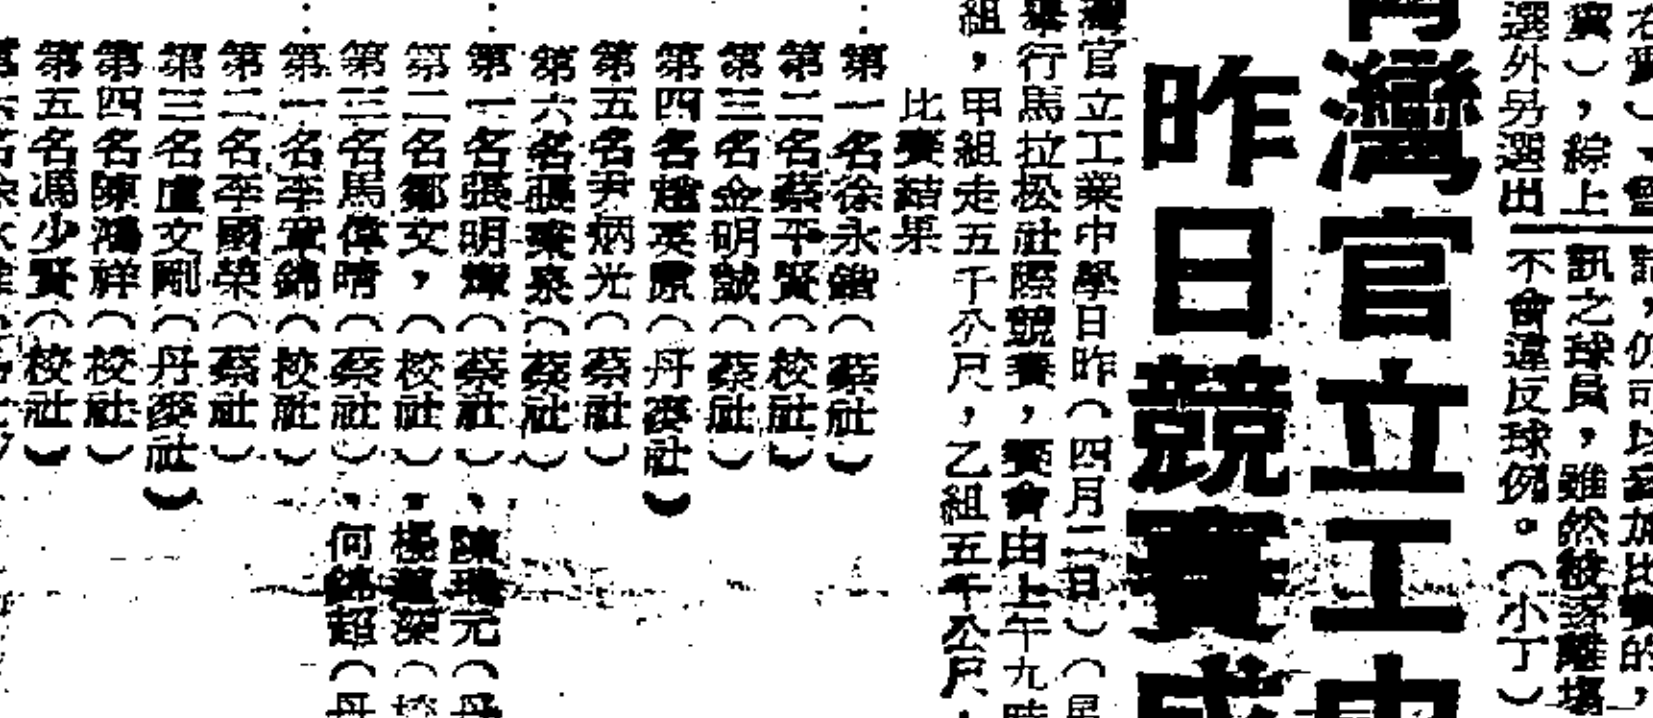 選外另選出
賓），綜上
不會違反球例。（小丁）
訊之球員，雖然被逐離場
話，仍可以參加比賽的，
灣官立工中
昨日競賽成
灣官立工業中學日昨（四月二日）（星
舉行馬拉松社際競賽，賽會由上午九時
組，甲組走五千公尺，乙組五千公尺，
比賽結果
第一名徐永鎰（蔡社）
第二名蔡平賢（校社）
第三名金明誠（蔡社）
第四名趙英原（丹麥社）
第五名尹炳光（蔡社）
第六名張業泉（蔡社）
第一名張明輝（蔡社）、陳瑞元（丹
第二名鄒文，（校社），楊蘊深（校
第三名馬偉晴（蔡社）、何錦超（丹
第一名李章錦（校社）
第二名李國榮（蔡社）
第三名盧文剛（丹麥社）
第四名陳鴻祥（校社）
第五名馮少賢（校社）